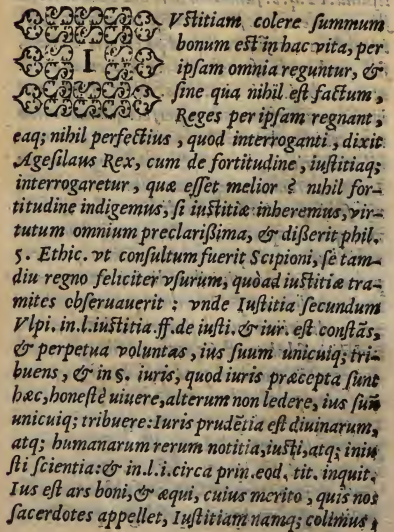 IVstitiam colere summum
bonum est in hac vita, per
ipsam omnia reguntur, &
sine qua nihil est factum,
Reges per ipsam regnant,
eaq; nihil perfectius, quod interroganti, dixit
Agesilaus Rex, cum de fortitudine, iustitiaq;
interrogaretur, quæ esset melior ? nihil for-
titudine indigemus, si iustitiæ inheremus, vir-
tutum omnium preclarißima, & dißerit phil.
5. Ethic. vt consultum fuerit Scipioni, se tam-
diu regno feliciter vsurum, quòad iustitiæ tra-
mites obseruauerit : vnde Iustitia secundum
Vlpi. in.l.iustitia.ff.de iusti.& iur. est constãs,
& perpetua voluntas, ius suum unicuiq; tri-
buens, & in §. iuris, quod iuris præcepta sunt
hæc, honestè uiuere, alterum non ledere, ius suũ
unicuiq; tribuere: Iuris prudẽtia est diuinarum,
atq; humanarum rerum notitia, iusti, atq; iniu
sti scientia: & in.l.i.circa prin.eod. tit. inquit,
Ius est ars boni, & æqui, cuius merito, quis nos
sacerdotes appellet, Iustitiam namq; colimus,